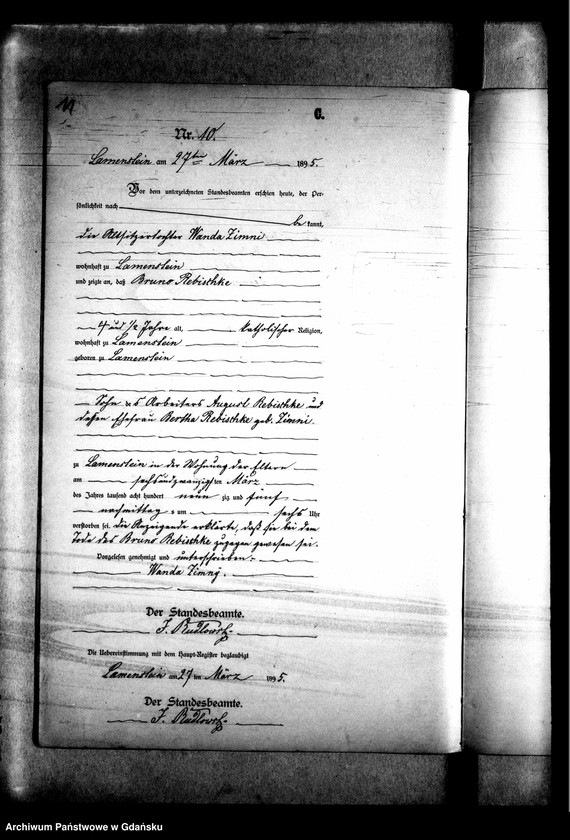 11
C.
Nr. 10.
Lamenstein am 27ten März 1895.
Vor dem unterzeichneten Standesbeamten erschien heute, der Per-
sönlichkeit nach
be kannt,
die Altsitzertochter Wanda Zimni
wohnhaft zu Lamenstein
und zeigte an, daß Bruno Rebischke
4 und 1/2 Jahre alt, katholischer Religion,
wohnhaft zu Lamenstein
geboren zu Lamenstein
Sohn des Arbeiters August Rebischke und
dessen Ehefrau Bertha Rebischke geb. Zimni.
zu Lamenstein in der Wohnung der Eltern
am sechsundzwanzigsten März
des Jahres tausend acht hundert neun zig und fünf
nachmittag s um sechs Uhr
verstorben sei. Die Anzeigende erklärte, daß sie bei dem
Tode des Bruno Rebischke zugegen gewesen sei.
Vorgelesen genehmigt und unterschrieben.
Wanda Zimny.
Der Standesbeamte.
J.
Die Uebereinstimmung mit dem Haupt-Register beglaubigt
Lamenstein am 27 ten März 1895.
Der Standesbeamte.
J.
Archiwum Państwowe w Gdańsku